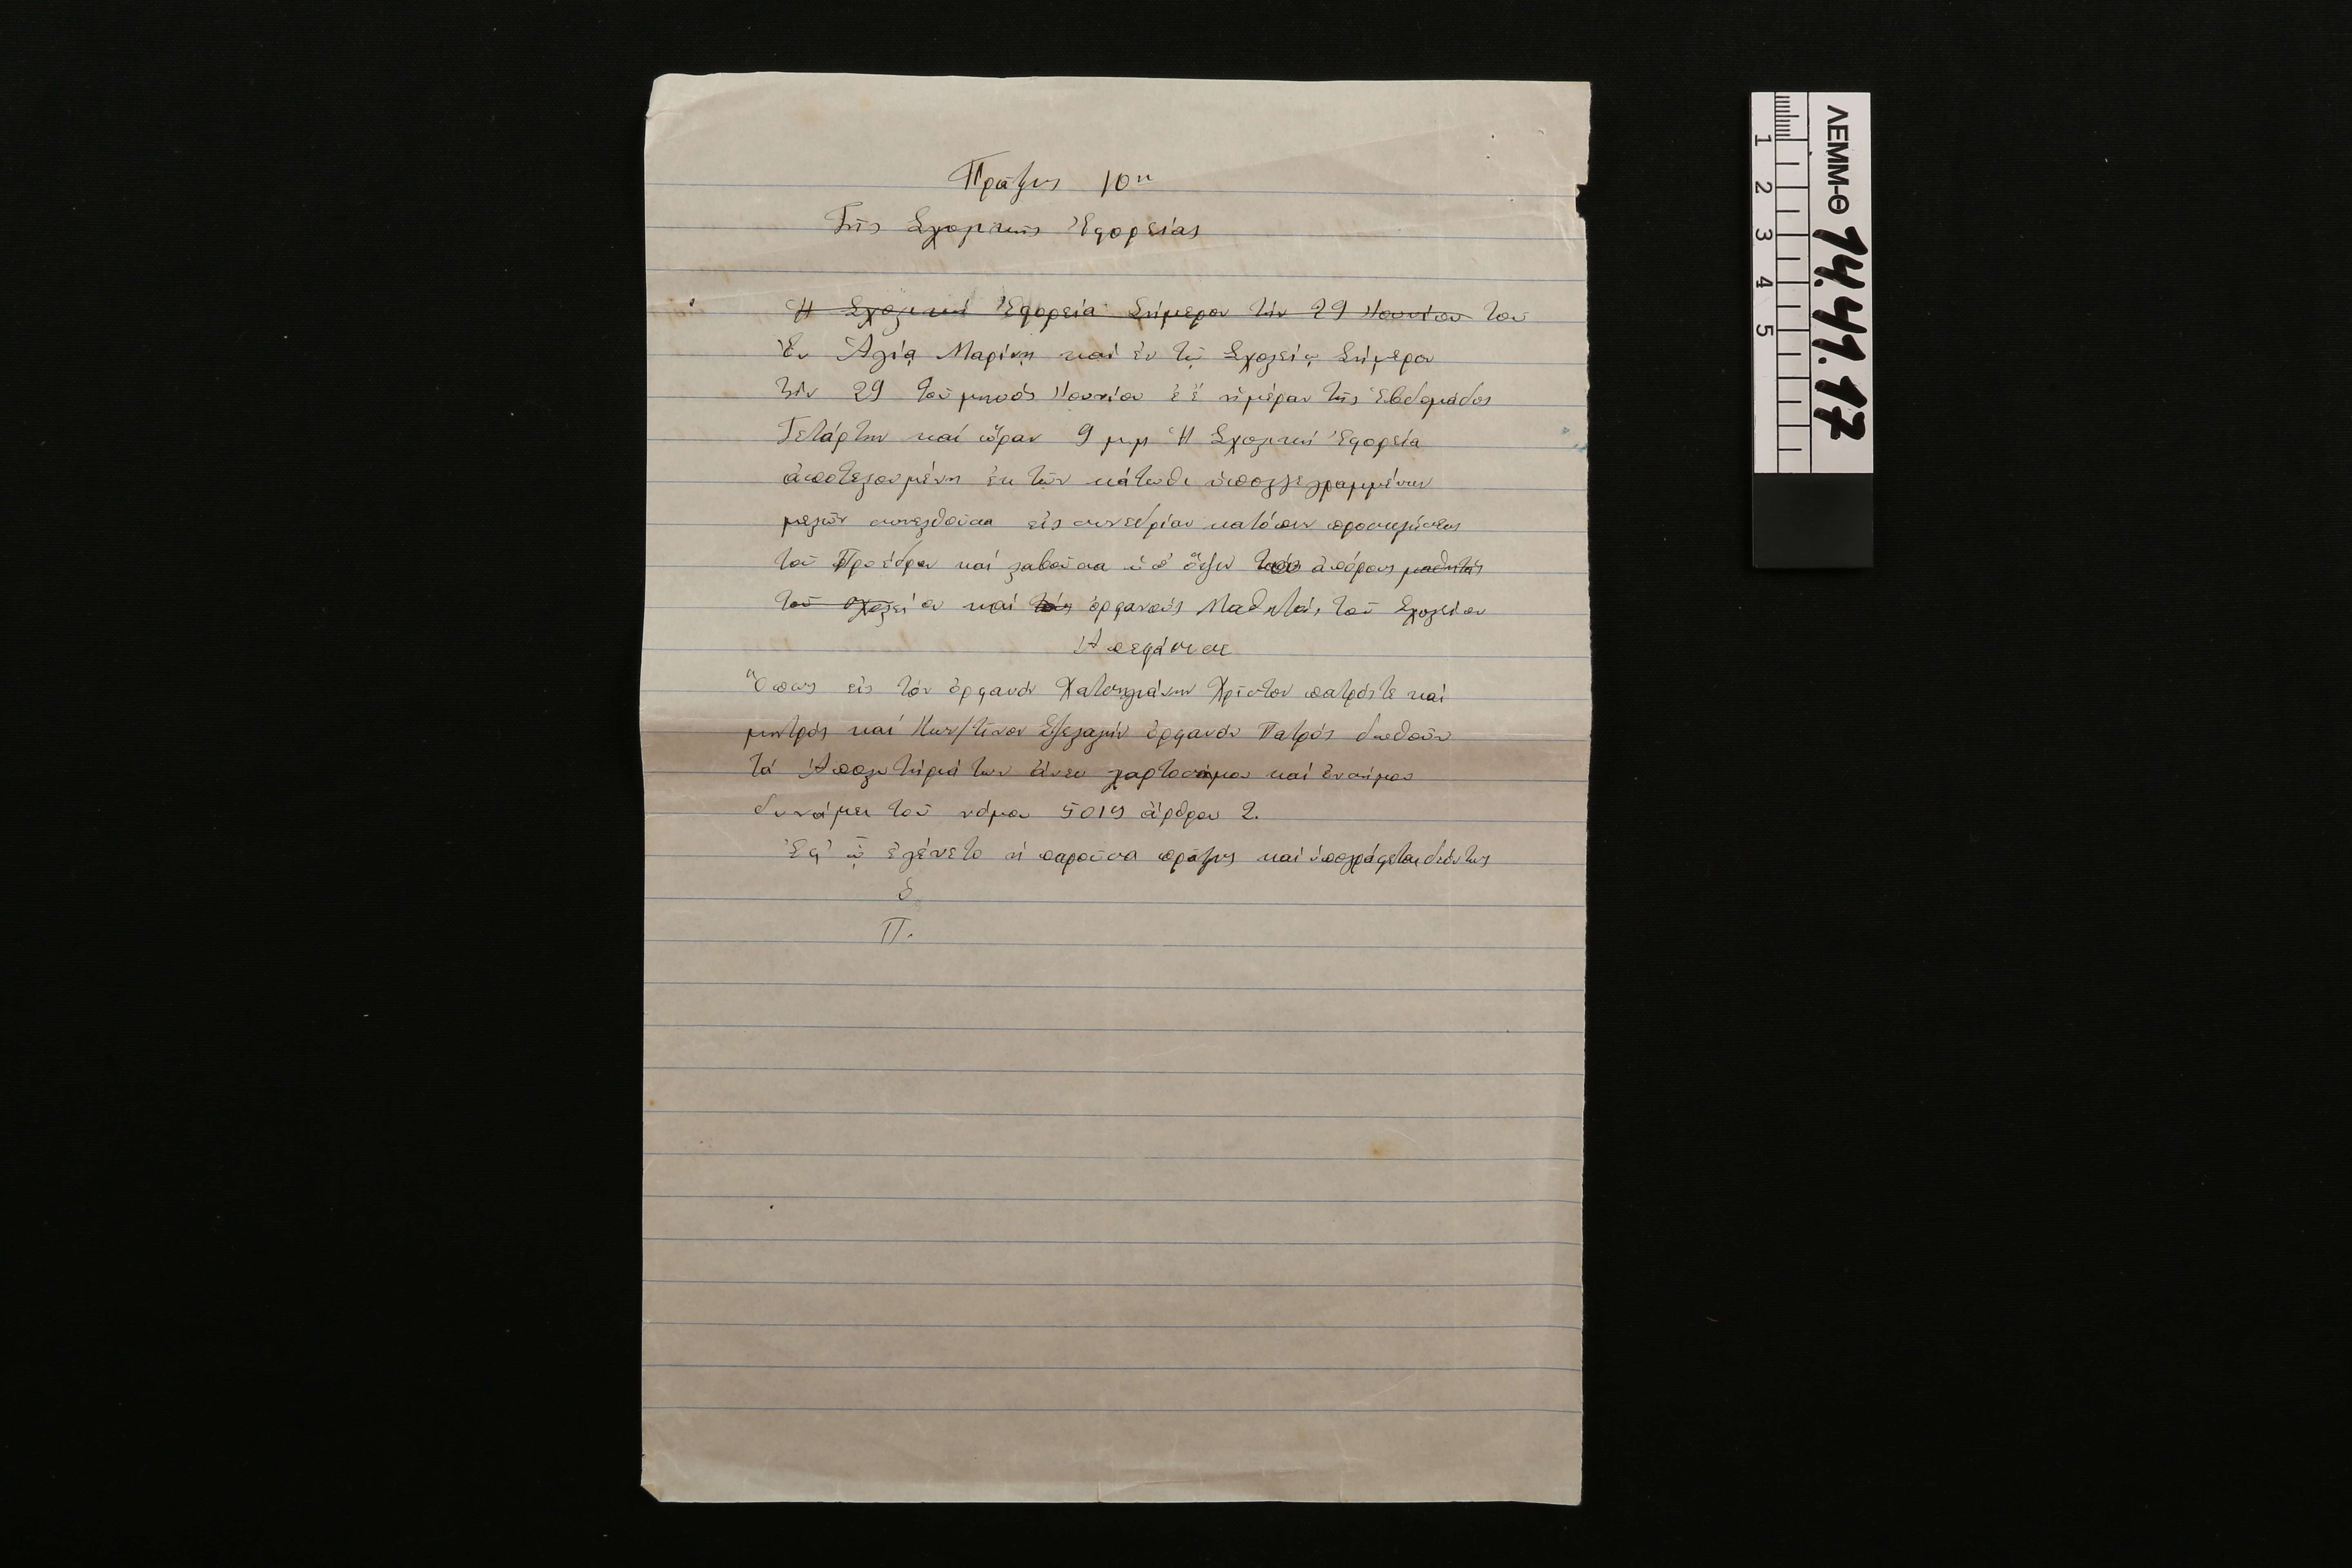 Πράξις 10η
Τῆς Σχολικῆς Ἐφορείας
Ἡ Σχολική Ἐφορεία Σήμερον τήν 29 Ἰουνίου του
Ἐν Ἁγίᾳ Μαρίνῃ καί ἐν τῷ Σχολείῳ Σήμερον
τήν 29 τοῦ μηνός Ἰουνίου ἐ.ἔ ἡμέραν τῆς Ἑβδομάδος
Τετάρτην καί ὥραν 9 μ.μ Ἡ Σχολική Ἐφορεία
ἀποτελουμένη ἐκ τῶν κάτωθι ὑπογεγραμμένων
μελῶν συνελθοῦσα εἰς συνεδρίαν κατόπιν προσκλήσεως
τοῦ Προέδρου καί λαβοῦσα ὑπ' ὄψιν τούς ἀπόρους μαθητάς
τοῦ σχολείου καί τούς ὀρφανούς Μαθητάς τοῦ Σχολείου
Ἀπεφάσισε
Ὅπως εἰς τόν ὀρφανόν Χρῖστον πατρός τε καί
μητρός καί Κων/τῖνον ὀρφανόν Πατρός δοθοῦν
τά Ἀπολυτήριά των ἄνευ χαρτοσήμου καί ἐνσήμου
δυνάμει τοῦ νόμου 5019 ἄρθρου 2.
Ἐφ' ᾧ ἐγένετο ἡ παροῦσα πρᾶξις καί ὑπογράφεται δεόντως
ὁ
Π.
ΛΕΜΜ-Θ 14.41.17
1 2 3 4 5